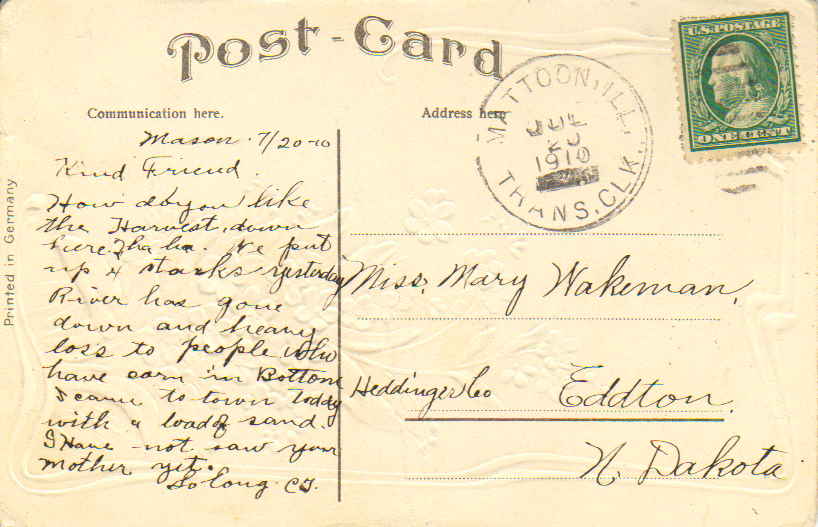 Post-Card
Communication here.
Address here
U.S. POSTAGE
ONE CENT
MATTOON, ILL.
JUL
20
1910
TRANS. CLK.
Printed in Germany
Mason 7/20-10
Kind Friend.
How do you like
the Harvest, down
here? ha ha. We put
up 4 stacks yesterday
River has gone
down and heavy
loss to people who
have corn in Bottom
I came to town Today
with a load of sand.
I Have not saw your
mother yet.
So long
Miss. Mary Wakeman.
Heddinger Co Eddton.
N. Dakota